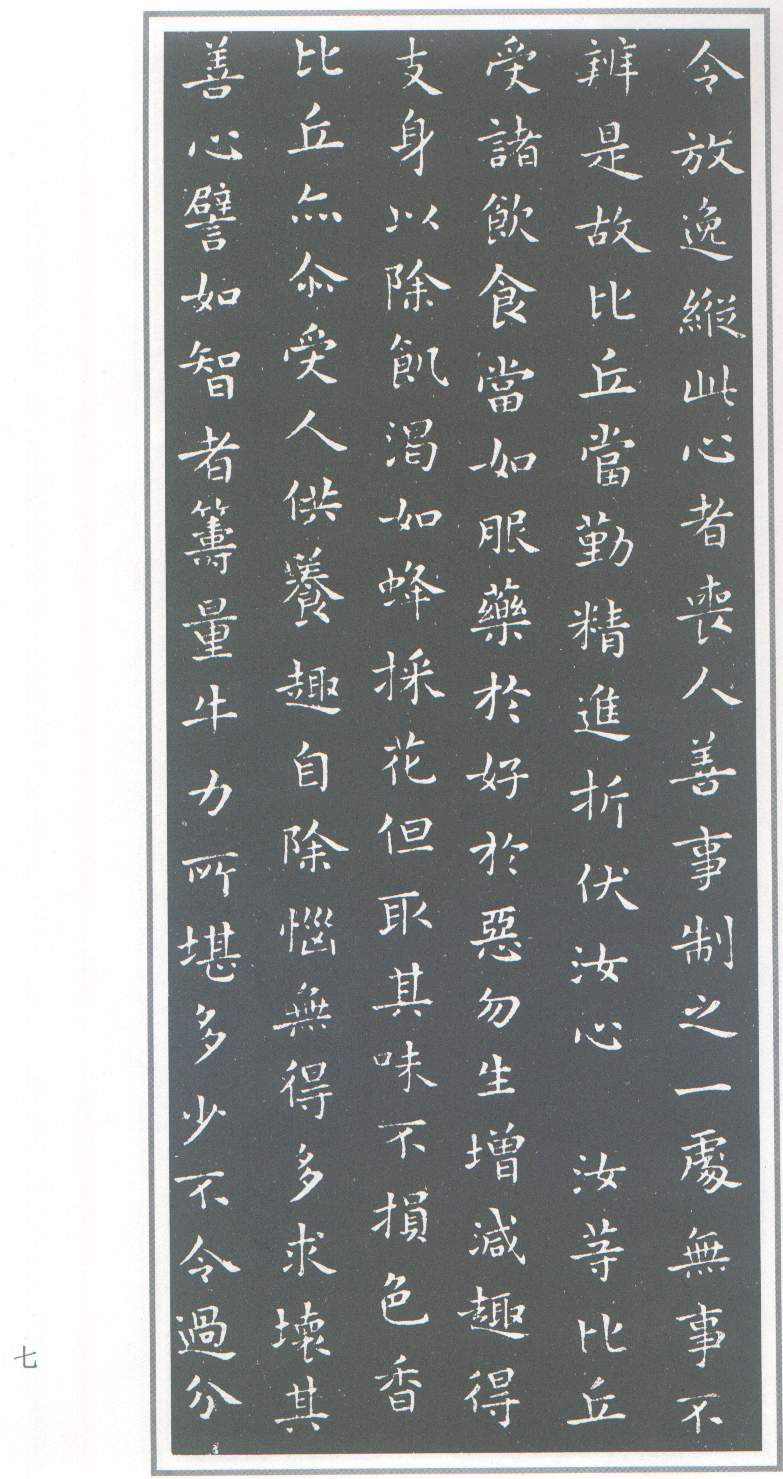 令放逸縱此心者喪人善事制之一處無事不
辨是故比丘當勤精進折伏汝心　汝等比丘
受諸飲食當如服藥於好於惡勿生增減趣得
支身以除飢渴如蜂採花但取其味不損色香
比丘亦尒受人供養趣自除惱無得多求壞其
善心譬如智者籌量牛力所堪多少不令過分
七